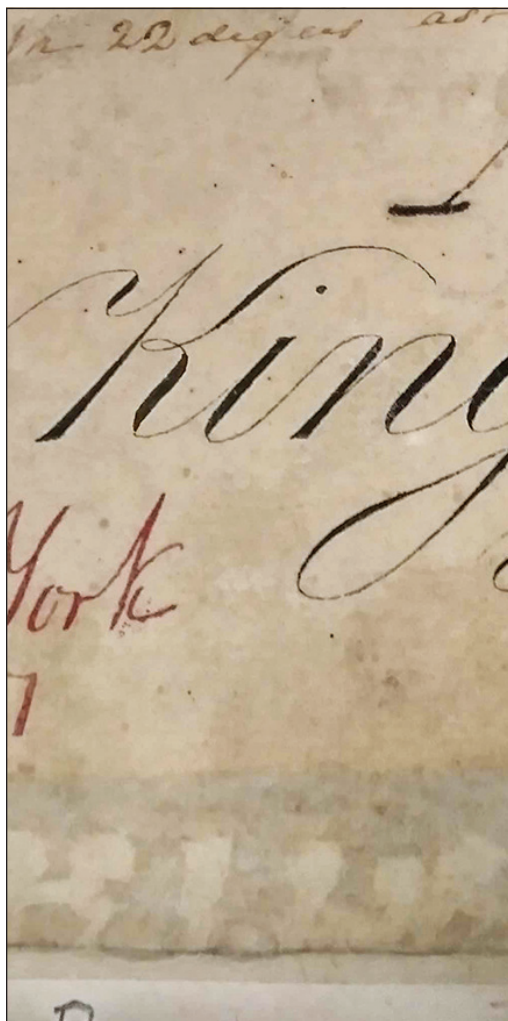 In 22 degrees
King
York
7